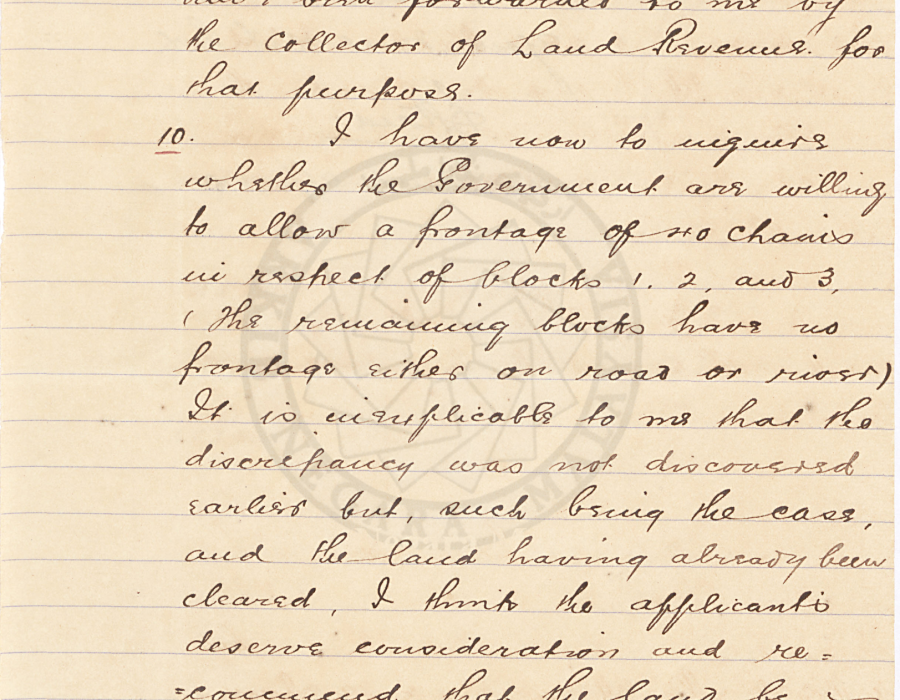 forwarded to me by
the Collector of Land Revenue. for
that purpose.
10. I have now to inquire
whether the Government are willing
to allow a frontage of 40 chains
in respect of blocks 1. 2, and 3,
(The remaining blocks have no
frontage either on road or river)
It is inexplicable to me that the
discrepancy was not discovered
earlier but, such being the case,
and the land having already been
cleared, I think the applicants
deserve consideration and re=
=commend that the land be